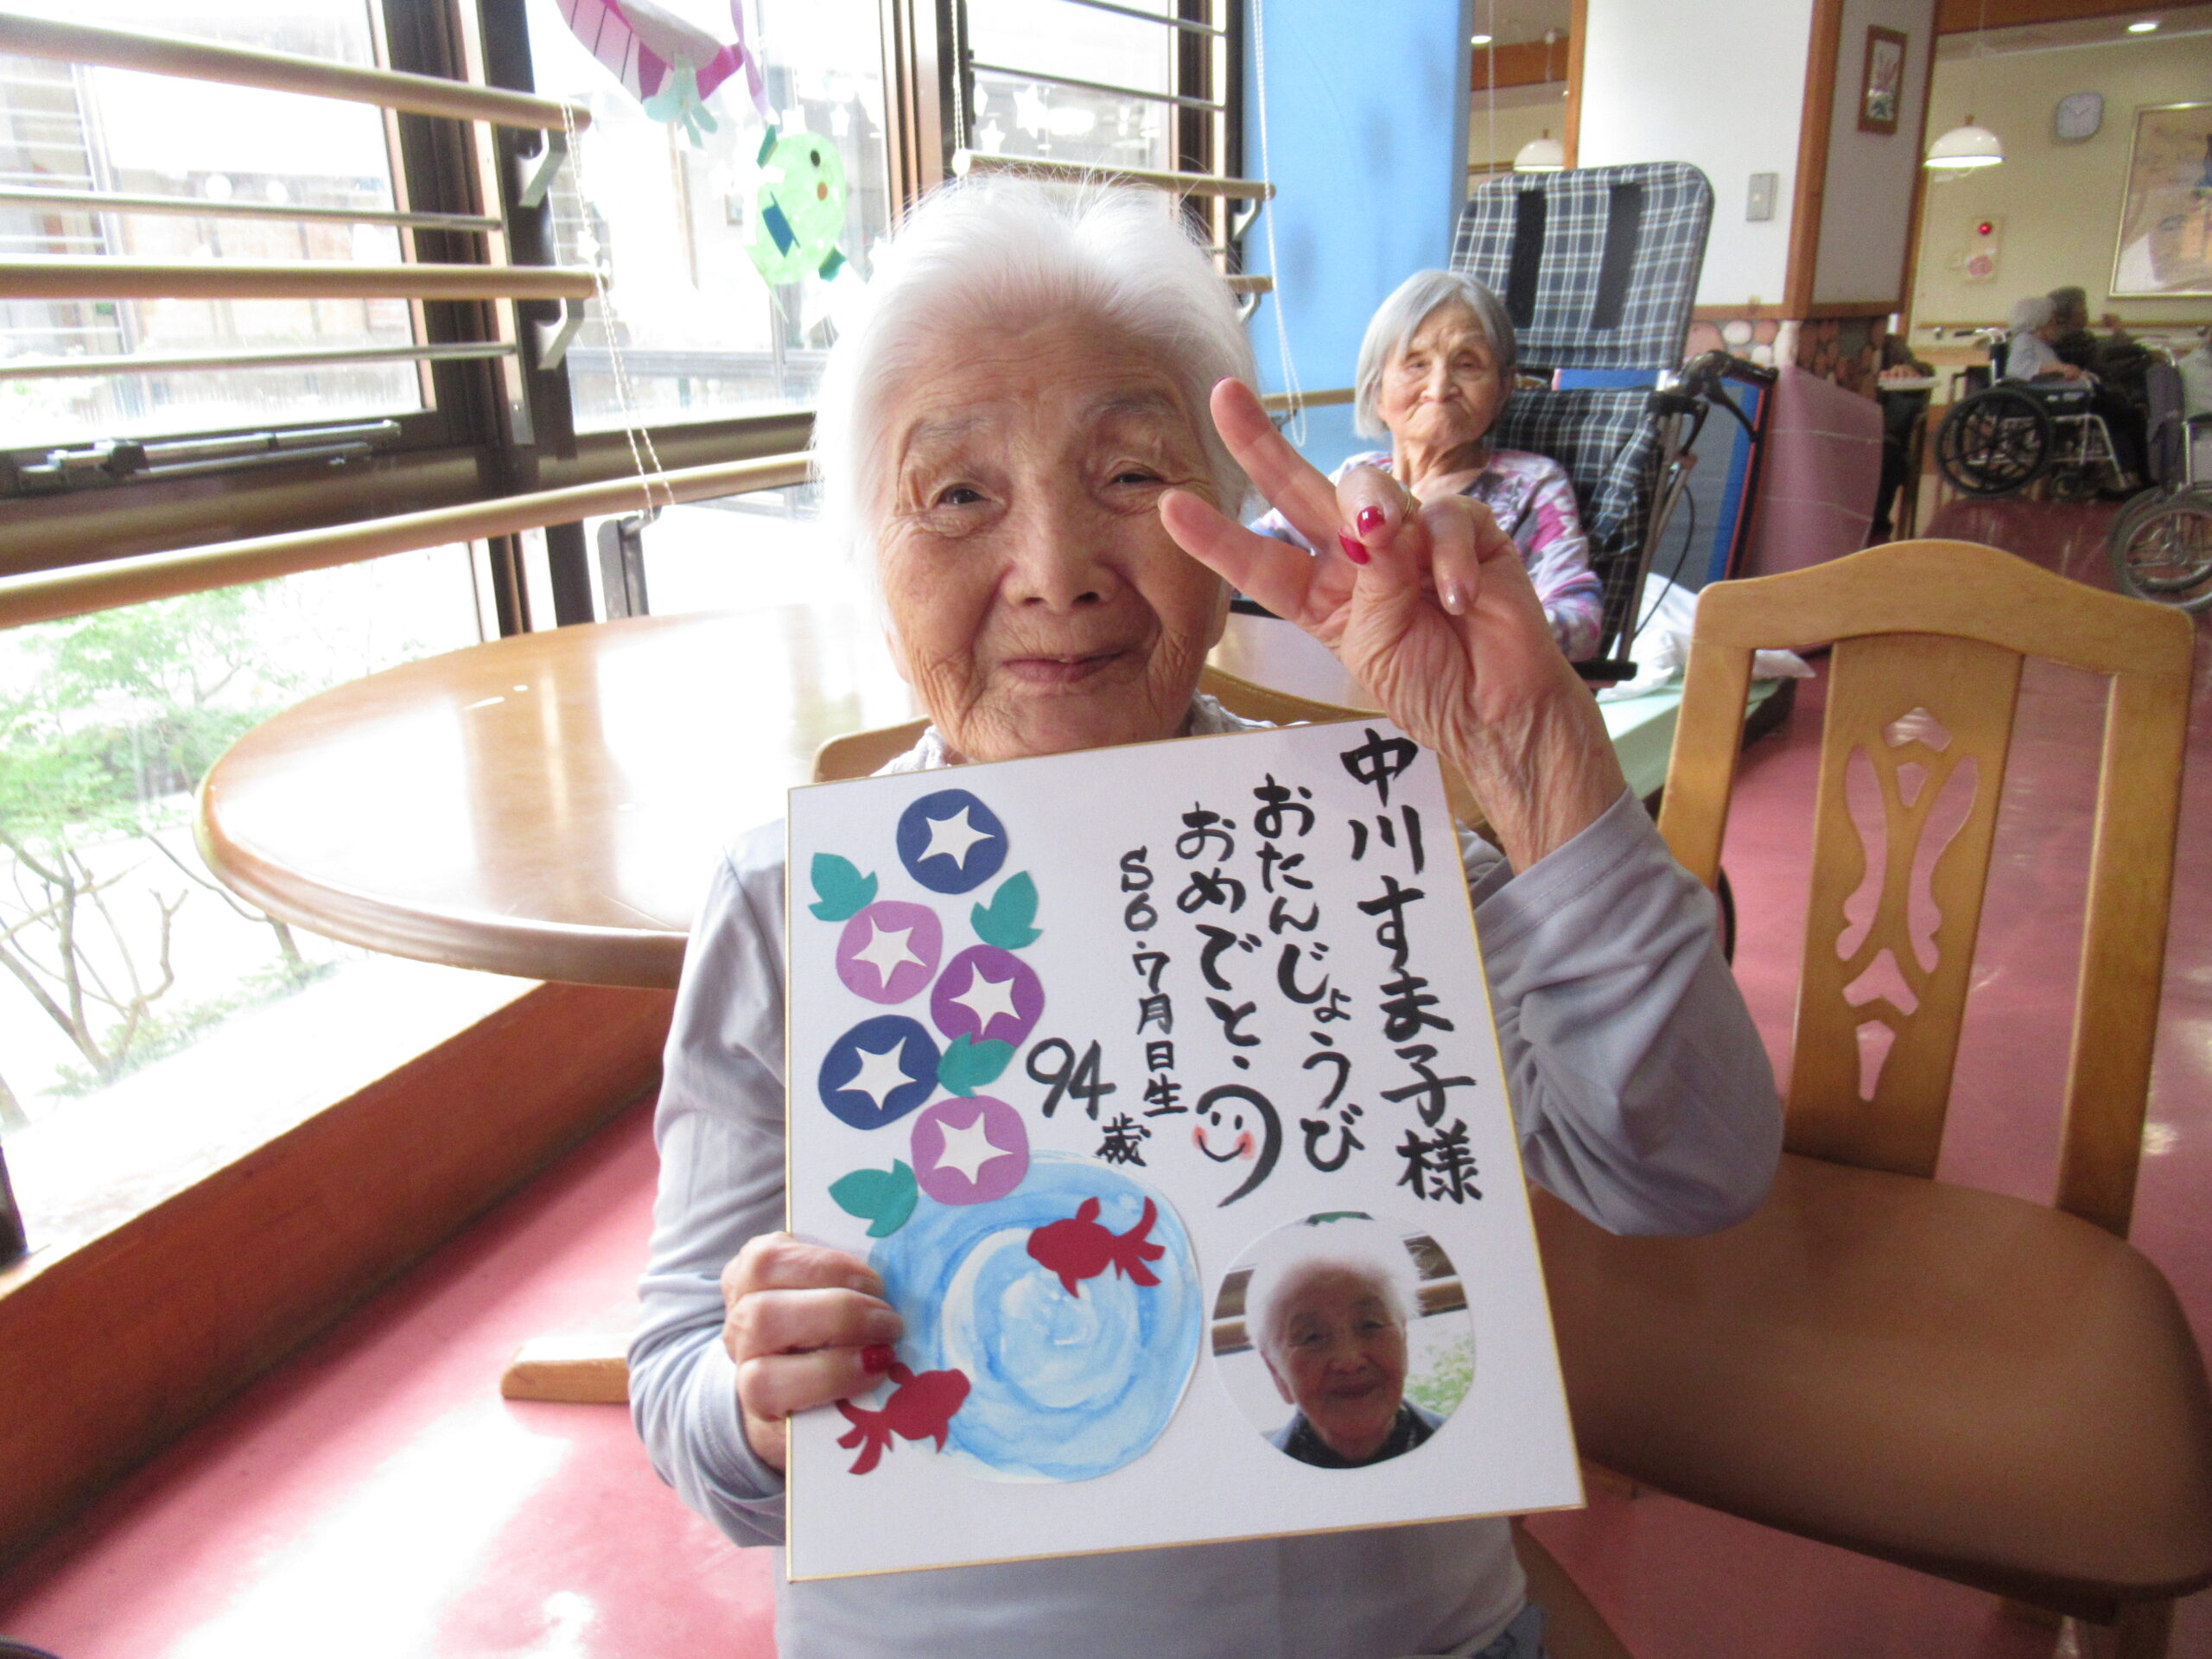 中川すま子様
おたんじょうび
おめでと、
S6.7月日生
94歳